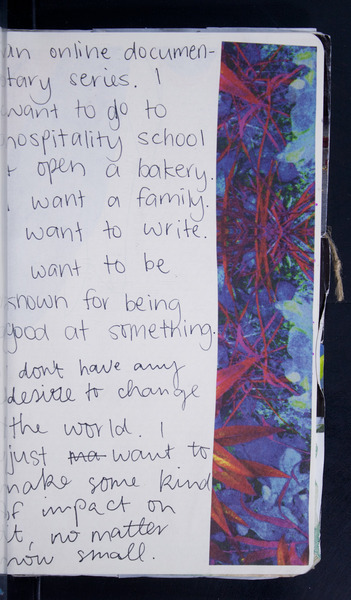 an online documen-
tary series. I
want to go to
hospitality school
+ open a bakery.
I want a family.
want to write.
want to be
known for being
good at something.
dont have any
desire to change
the world. I
just ma want to
make some kind
of impact on
it, no matter
how small.